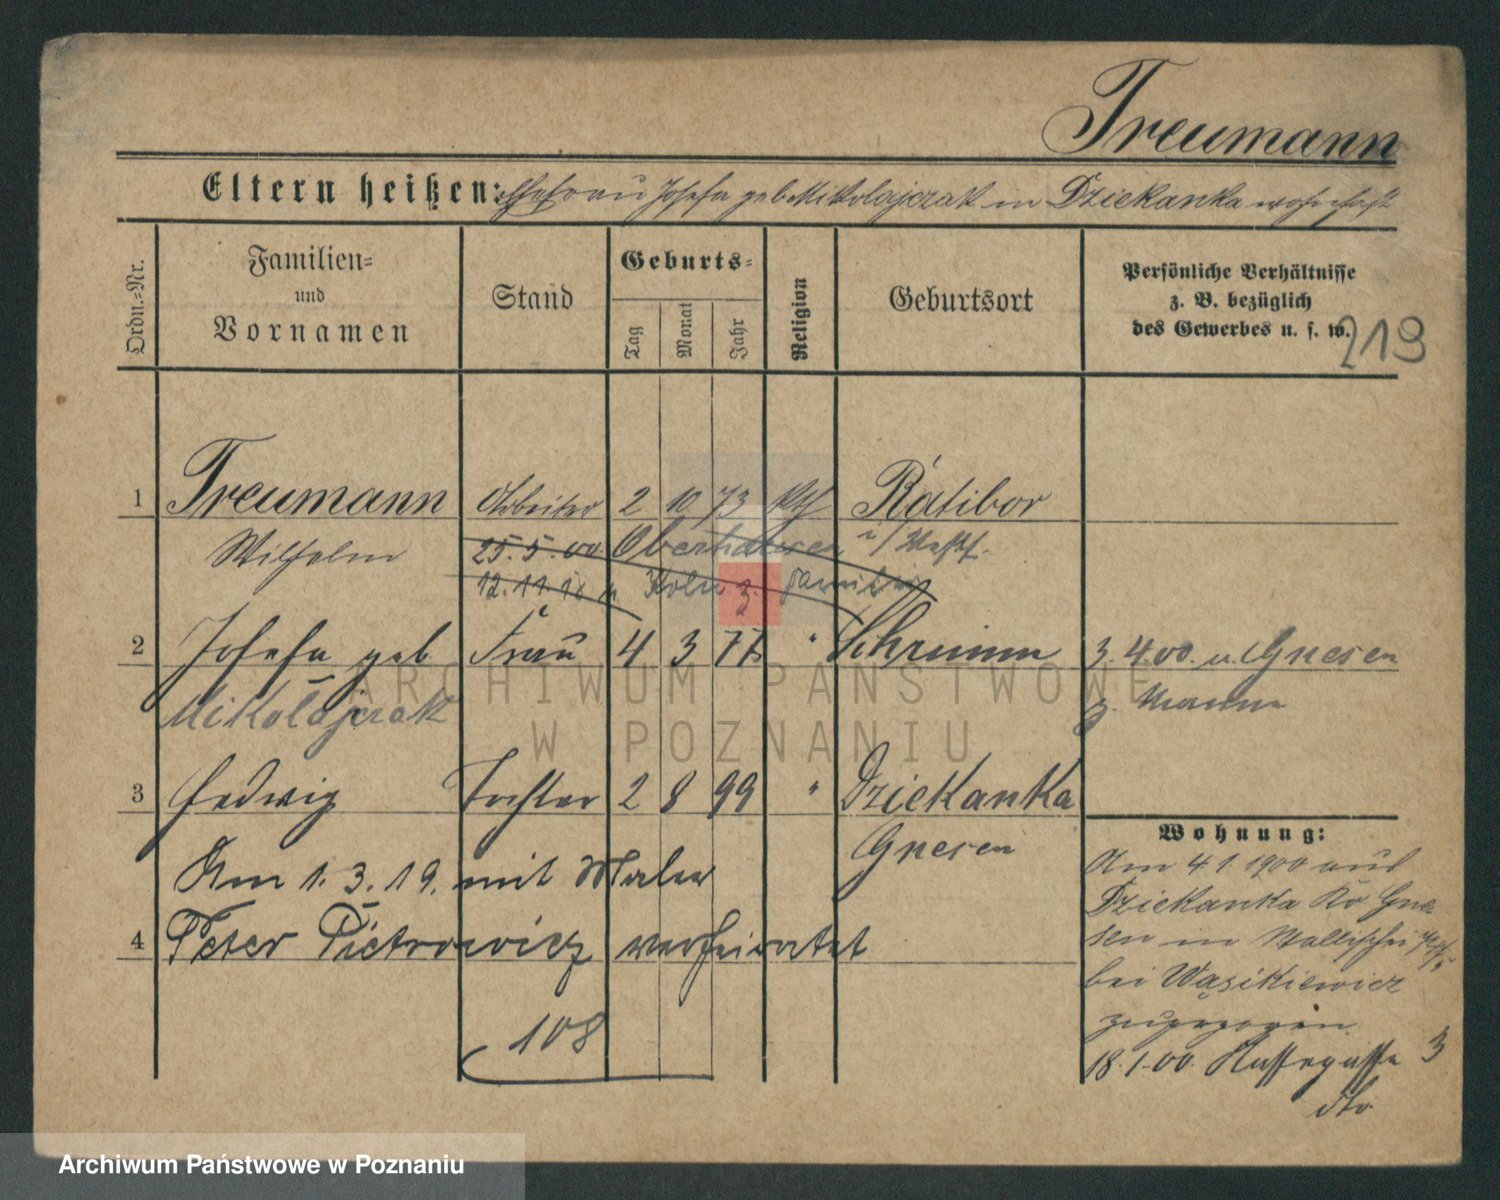 Treumann
Eltern heißen: Ehefrau Josefa geb Mikolajczak in Dziekanka wohnhaft
Ordn.-Nr.
Familien-
und
Vornamen
Stand
Geburts-
Tag
Monat
Jahr
Religion
Geburtsort
Persönliche Verhältnisse
z. B. bezüglich
des Gewerbes u. s. w.
219
1 Treumann Arbeiter 2 10 73 kth Ratibor
Wilhelm 25.5.00. Oberhausen i/Westf.
12.11. n Köln z. Familie
2 Josefa geb Frau 4 3 77 " Schrimm 3.4.00. n. Gnesen
Mikolajczak z. Manne
3 Hedwig Tochter 2 8 99 " Dziekanka
Gnesen
Am 1.3.19. mit Maler
4 Peter Pietrowicz verheiratet
108
Wohnung:
Am 4.1.1900 aus
Dziekanka Kr Gne
sen in Wallischei
bei Wąsikiewicz
zugezogen.
18.1.00. 3
dto
ARCHIWUM PAŃSTWOWE
W POZNANIU
Archiwum Państwowe w Poznaniu